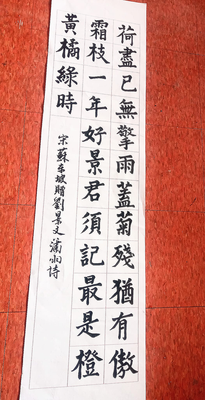 荷盡已無擎雨蓋菊殘猶有傲
霜枝一年好景君須記最是橙
黃橘綠時
宋蘇東坡贈劉景文詩